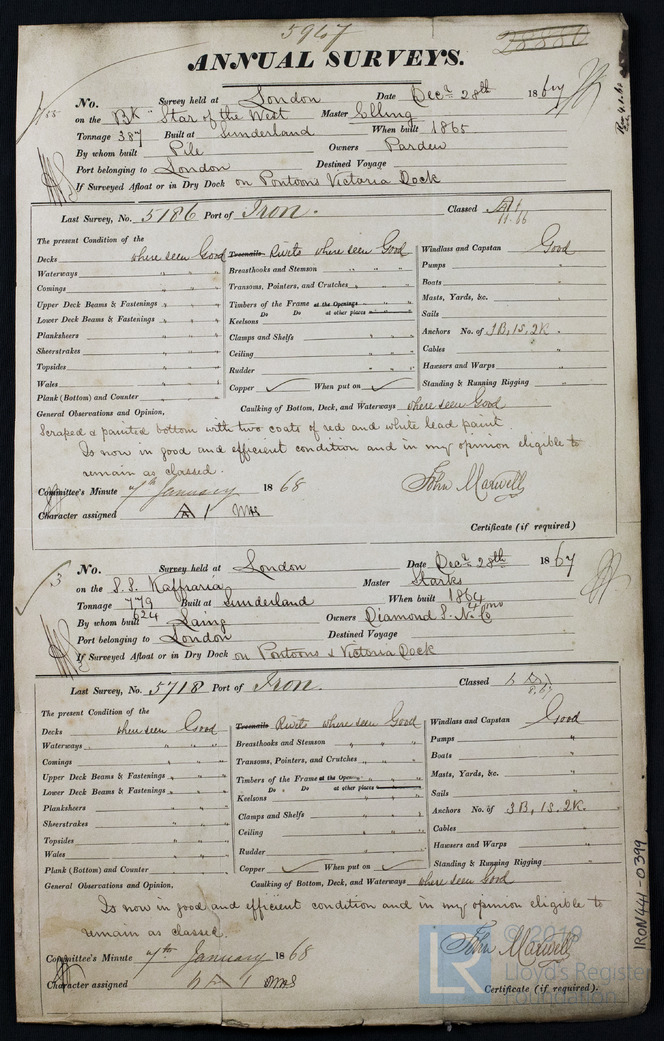 5967
ANNUAL SURVEYS.
No. Survey held at London Date Decr 28th 1867
on the Bk "Star of the West Master Elling
Tonnage 387 Built at Sunderland When built 1865
By whom built Pile Owners Pardew
Port belonging to London Destined Voyage
If Surveyed Afloat or in Dry Dock on Pontoons Victoria Dock
Last Survey, No. 5186 Port of Iron. Classed A1 11.66
The present Condition of the
Decks where seen Good Treenails Rivets where seen Good Windlass and Capstan Good
Waterways " " " Breasthooks and Stemson " " " Pumps "
Comings " " " Transoms, Pointers, and Crutches " " " Boats "
Upper Deck Beams & Fastenings " " " Timbers of the Frame at the Openings " " " Masts, Yards, &c. "
Lower Deck Beams & Fastenings " " " Do Do at other places Sails "
Planksheers " " " Keelsons Anchors No. of 3B, 1S, 2K.
Sheerstrakes " " " Clamps and Shelfs " " " Cables "
Topsides " " " Ceiling " " " Hawsers and Warps "
Wales " " " Rudder " " " Standing & Running Rigging "
Plank (Bottom) and Counter " " " Copper ✓ When put on ✓
General Observations and Opinion, Caulking of Bottom, Deck, and Waterways where seen Good
Scraped & painted bottom with two coats of red and white lead paint
Is now in good and efficient condition and in my opinion eligible to
remain as classed.
Committee's Minute 7th January 1868 John Maxwell
Character assigned A 1
Certificate (if required)
3 No. Survey held at London Date Decr 28th 1867
on the S.S. Kaffraria Master Starks
Tonnage 779 624 Built at Sunderland When built 1864 4 mo
By whom built Laing Owners Diamond S. N. Co
Port belonging to London Destined Voyage
If Surveyed Afloat or in Dry Dock on Pontoons & Victoria Dock
Last Survey, No. 5718 Port of Iron. Classed 8.67
The present Condition of the
Decks when seen Good Treenails Rivets where seen Good Windlass and Capstan Good
Waterways " " " Breasthooks and Stemson " " " Pumps "
Comings " " " Transoms, Pointers, and Crutches " " " Boats "
Upper Deck Beams & Fastenings " " " Timbers of the Frame at the Openings Masts, Yards, &c. "
Lower Deck Beams & Fastenings " " " Do Do at other places Sails "
Planksheers " " " Keelsons " " " Anchors No. of 3B, 1S, 2K.
Sheerstrakes " " " Clamps and Shelfs " " " Cables "
Topsides " " " Ceiling " " " Hawsers and Warps "
Wales " " " Rudder " " " Standing & Running Rigging "
Plank (Bottom) and Counter " " " Copper ✓ When put on ✓
General Observations and Opinion, Caulking of Bottom, Deck, and Waterways where seen Good
Is now in good and efficient condition and in my opinion eligible to
remain as classed.
Committee's Minute 7th January 1868 John Maxwell
Character assigned A 1
Certificate (if required).
IRON441-0399
LR © 2019
Lloyd's Register
Foundation